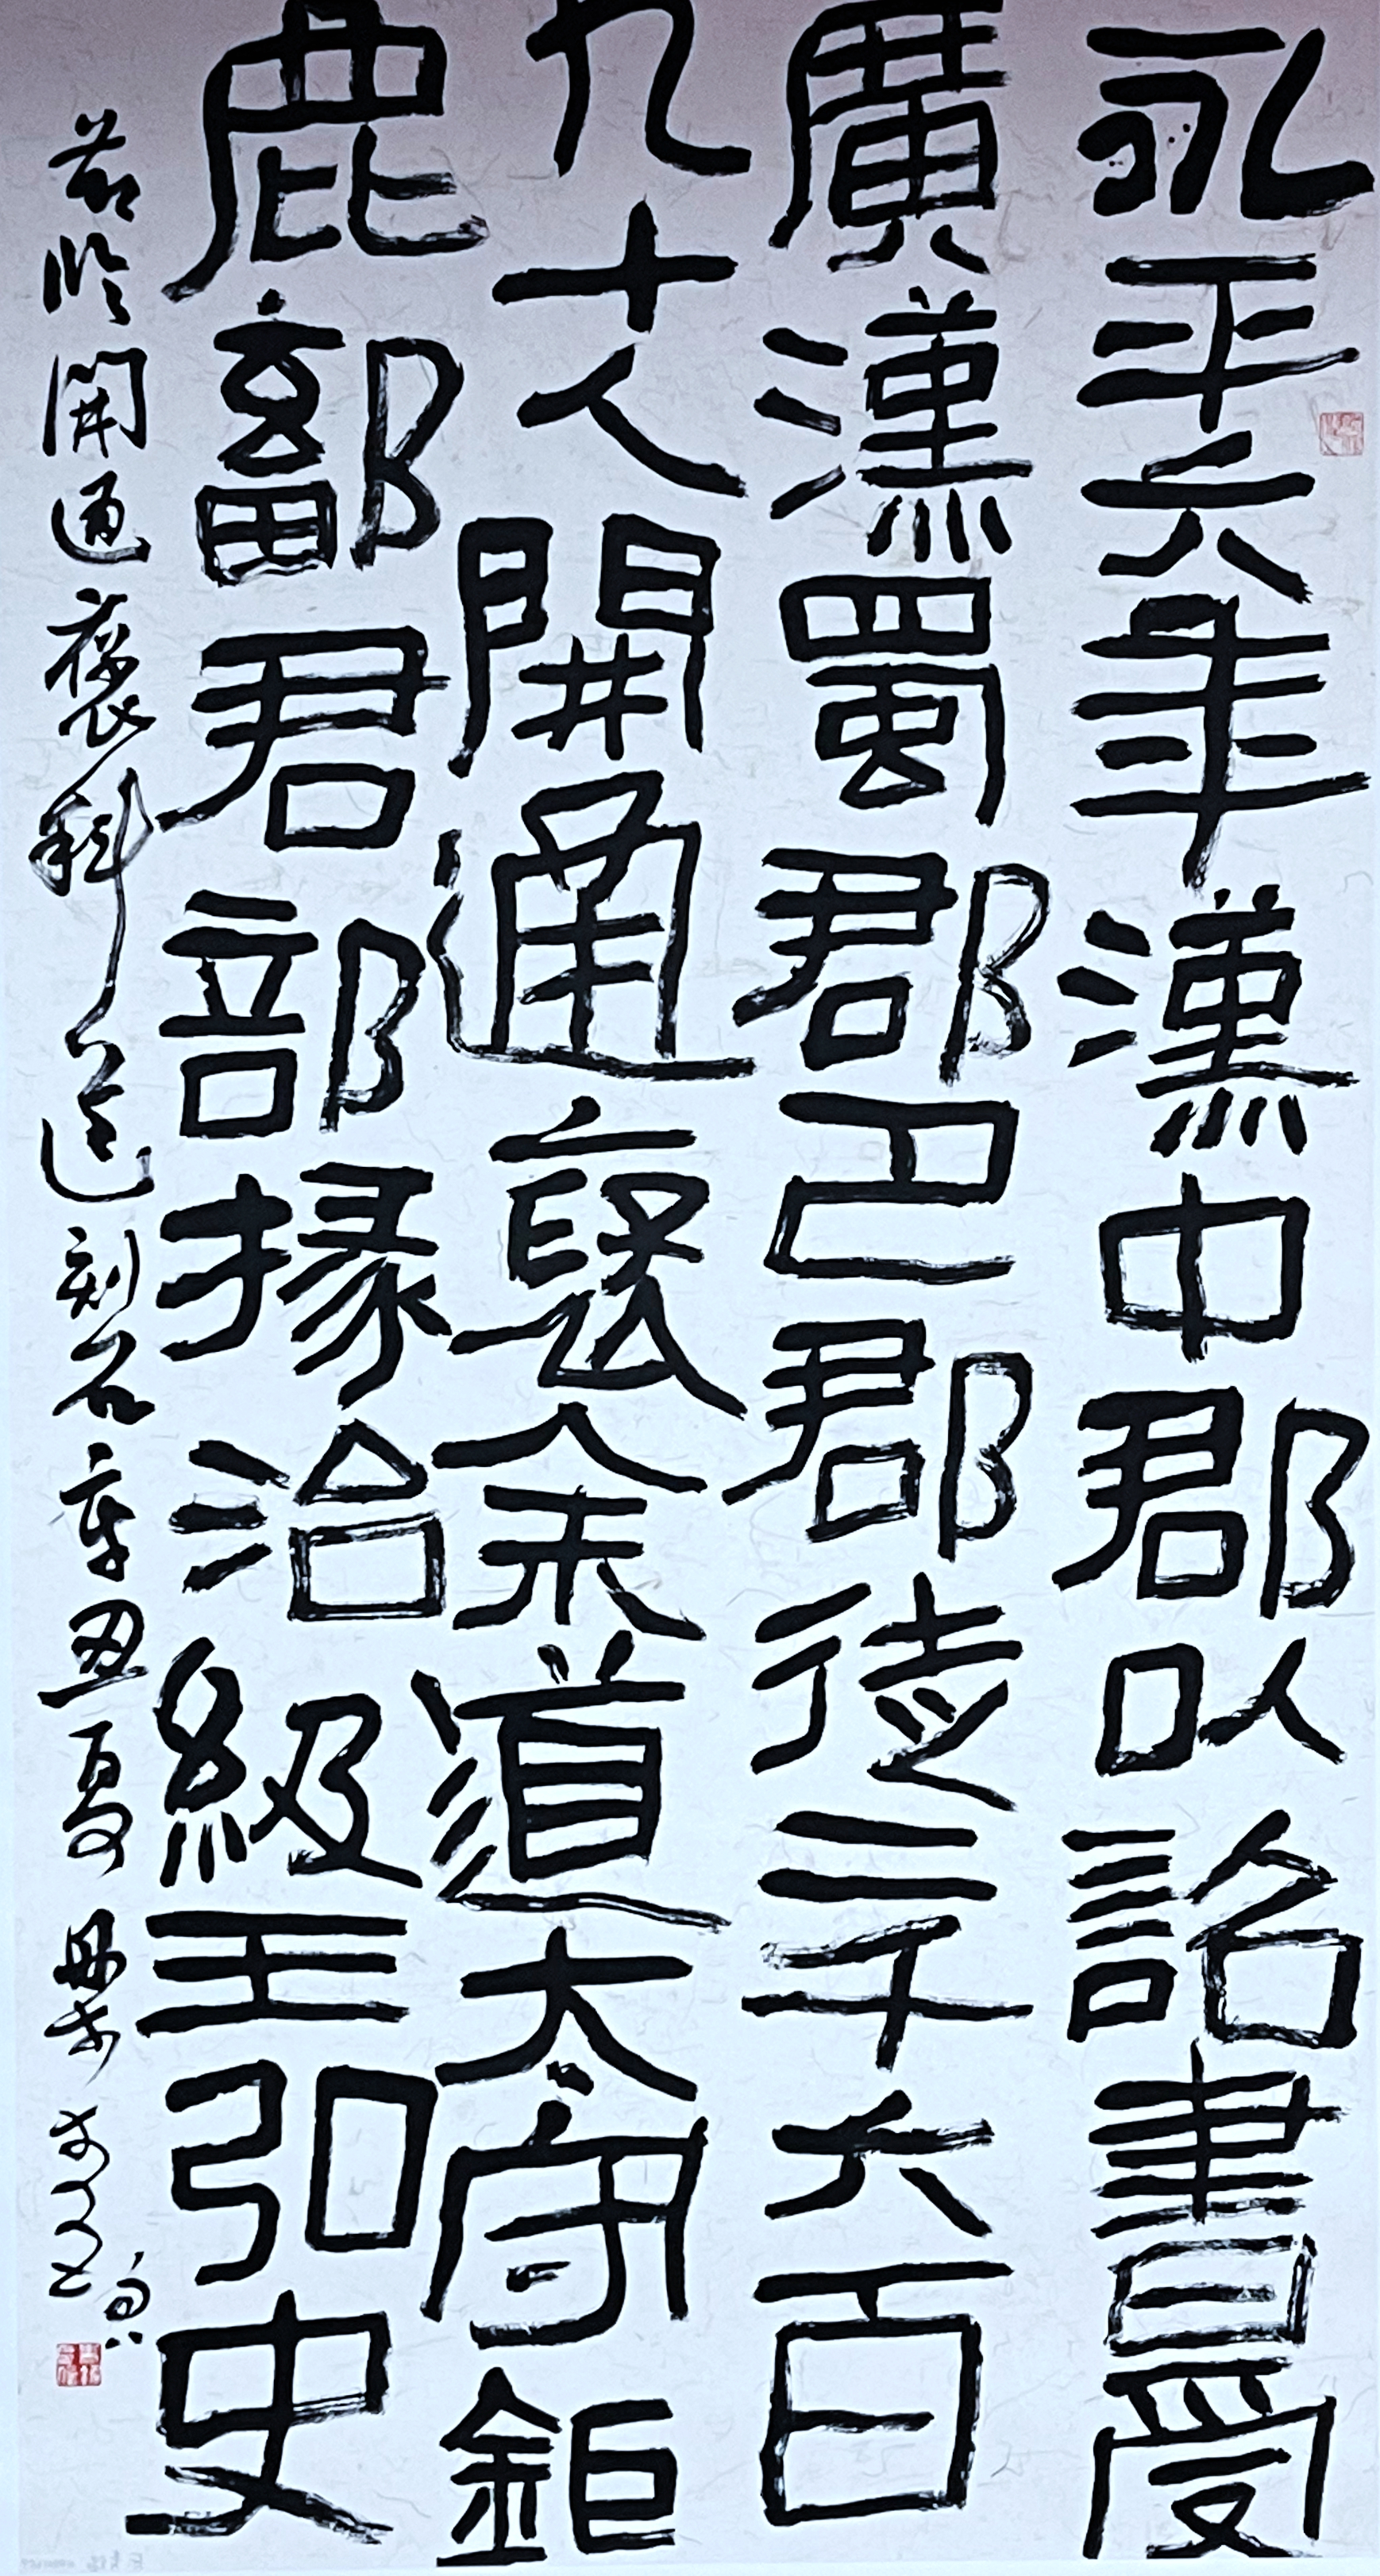 永平六年漢中郡以詔書受
廣漢蜀郡巴郡徒二千六百
九十人開通襃余道太守鉅
鹿鄐君部掾治級王弘史
節臨開通褒斜道刻石辛丑夏